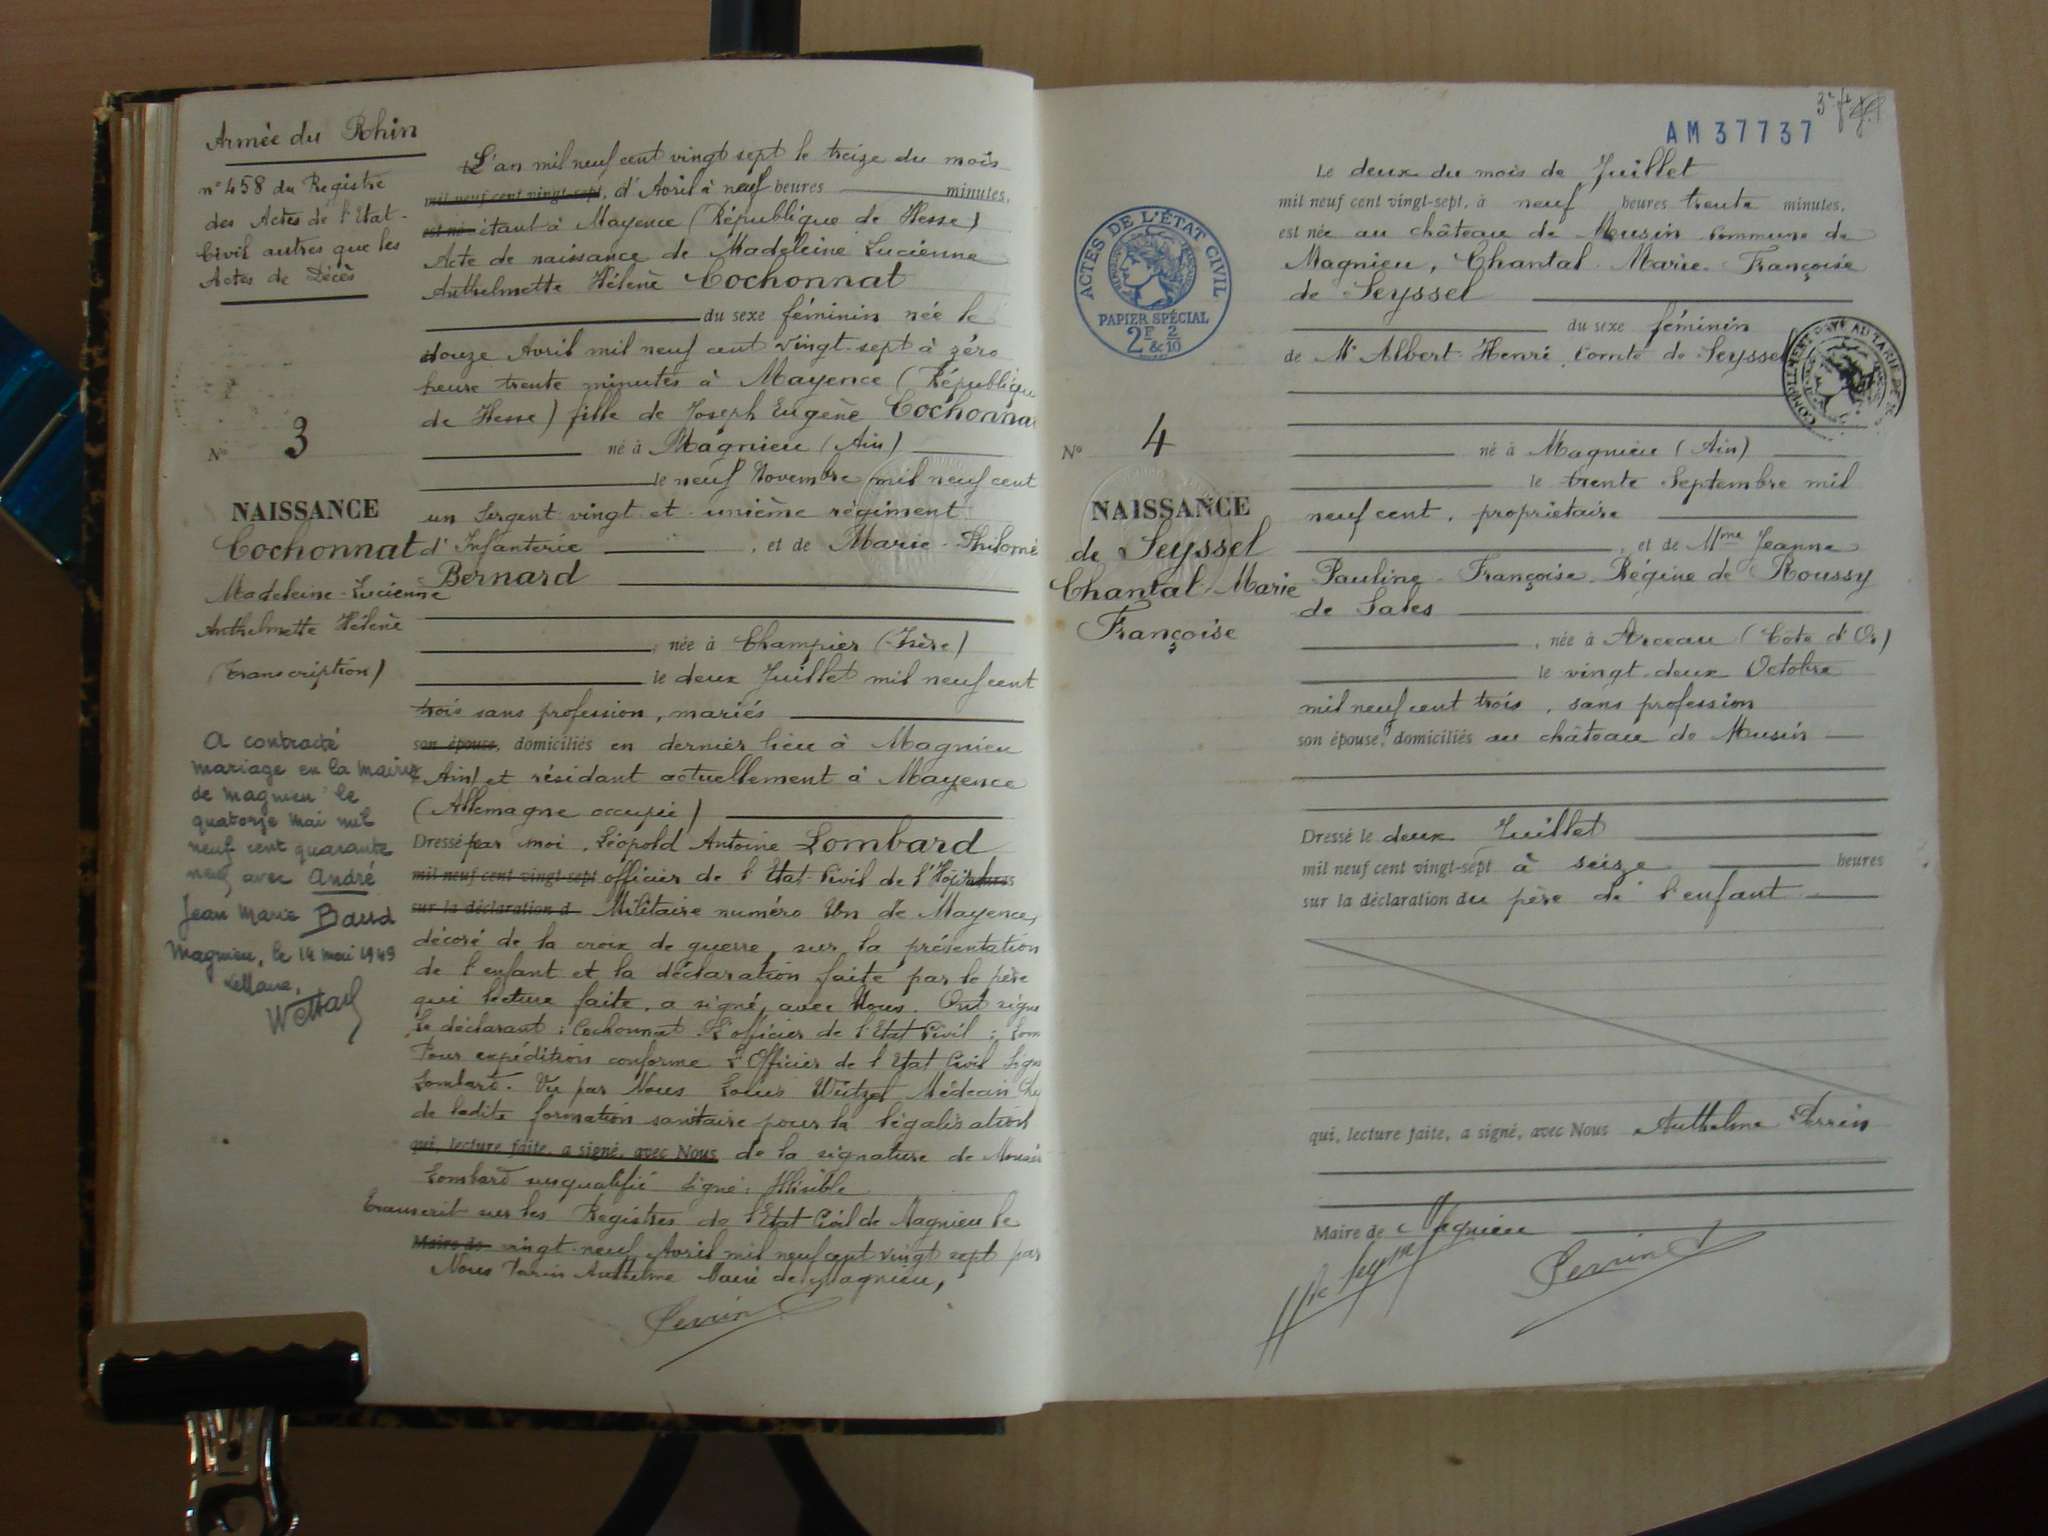 Armée du Rhin
n° 458 du Registre
des Actes de l'Etat-
Civil autres que les
Actes de Décès
N° 3
NAISSANCE
Cochonnat
Madeleine-Lucienne
Anthelmette Hélène
(Transcription)
A contracté
mariage en la mairie
de Magnieu le
quatorze mai mil
neuf cent quarante
neuf avec André
Jean Marie Baud
Magnieu, le 14 mai 1949
Le Maire,
L'an mil neuf cent vingt sept le treize du mois
mil neuf cent vingt-sept, d'Avril à neuf heures minutes,
est né étant à Mayence (République de Hesse)
Acte de naissance de Madeleine Lucienne
Anthelmette Hélène Cochonnat
du sexe féminin née le
douze Avril mil neuf cent vingt-sept à zéro
heure trente minutes à Mayence (République
de Hesse) fille de Joseph Eugène Cochonna
né à Magnieu (Ain)
le neuf Novembre mil neuf cent
un Sergent vingt et unième régiment
d'Infanterie , et de Marie-Philomè
Bernard
, née à Champier (Isère)
le deux Juillet mil neuf cent
trois sans profession, mariés
son épouse, domiciliés en dernier lieu à Magnieu
Ain) et résidant actuellement à Mayence
(Allemagne occupée)
Dressé par moi, Léopold Antoine Lombard
mil neuf cent vingt-sept officier de l'Etat-Civil de l'Hôpital heures
sur la déclaration d Militaire numéro Un de Mayence,
décoré de la croix de guerre, sur la présentation
de l'enfant et la déclaration faite par le père
qui lecture faite, a signé avec Nous. Ont signé
Le déclarant : Cochonnat. L'officier de l'Etat Civil : Lom
Pour expédition conforme L'Officier de l'Etat Civil Sign
Lombard. Vu par Nous Louis Médecin
de ladite formation sanitaire pour la légalisation
qui, lecture faite, a signé, avec Nous de la signature de Monsie
Lombard susqualifié Signé : Illisible
Transcrit sur les Registres de l'Etat Civil de Magnieu le
Maire de vingt-neuf Avril mil neuf cent vingt sept par
Nous Perrin Anthelme Maire de Magnieu,
Perrin
AM 37737
ACTES DE L'ÉTAT CIVIL
PAPIER SPÉCIAL
2F & 2/10
N° 4
NAISSANCE
de Seyssel
Chantal Marie
Françoise
Le deux du mois de Juillet
mil neuf cent vingt-sept, à neuf heures trente minutes,
est née au château de Musin commune de
Magnieu, Chantal-Marie-Françoise
de Seyssel
du sexe féminin
de Mr Albert-Henri, Comte de Seyssel
né à Magnieu (Ain)
le trente Septembre mil
neuf cent, propriétaire
, et de Mme Jeanne
Pauline-Françoise-Régine de Roussy
de Sales
, née à Arceau (Côte d'Or)
le vingt-deux Octobre
mil neuf cent trois, sans profession
son épouse, domiciliés au château de Musin
Dressé le deux Juillet
mil neuf cent vingt-sept à seize heures
sur la déclaration du père de l'enfant
qui, lecture faite, a signé, avec Nous Anthelme Perrin
Maire de Magnieu
Perrin